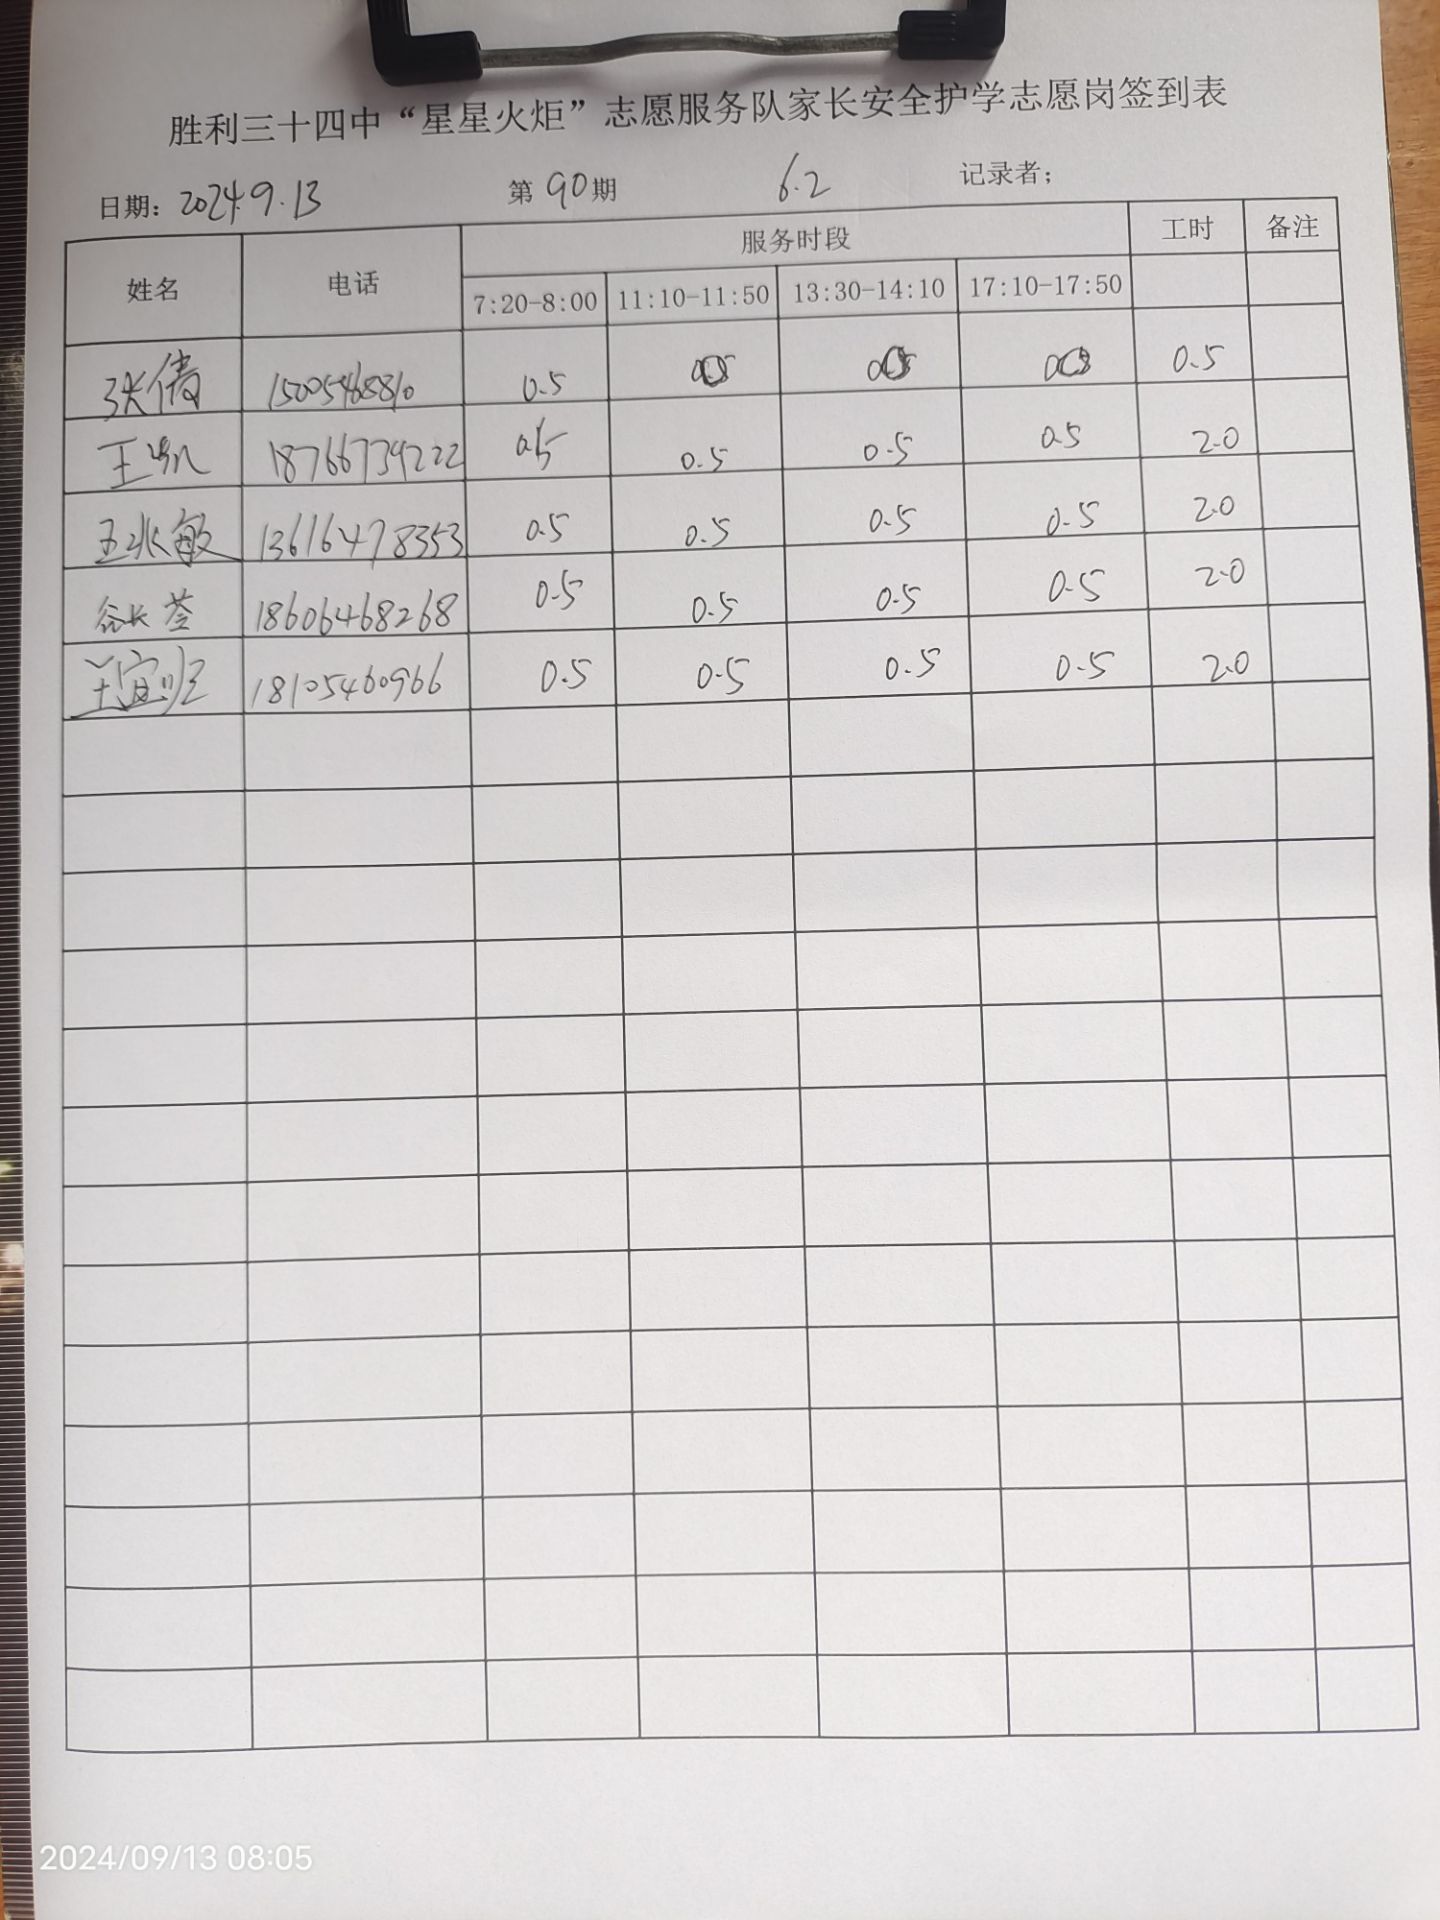 胜利三十四中“星星火炬”志愿服务队家长安全护学志愿岗签到表
日期：2024.9.13 第90期 6.2 记录者；
姓名 电话 服务时段 工时 备注
7:20-8:00 11:10-11:50 13:30-14:10 17:10-17:50
张倩 15005468810 0.5 0.5
王凯 18766739222 0.5 0.5 0.5 0.5 2.0
王兆敏 13616478353 0.5 0.5 0.5 0.5 2.0
谷长荃 18606468268 0.5 0.5 0.5 0.5 2.0
18105460966 0.5 0.5 0.5 0.5 2.0
2024/09/13 08:05